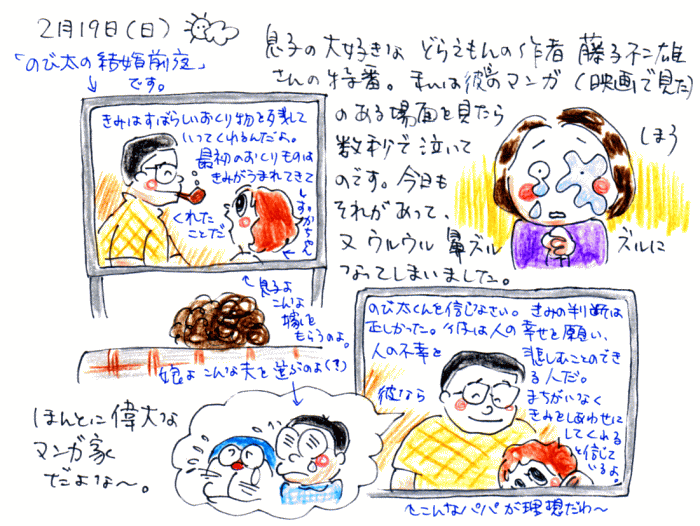 2月19日(日)
「のび太の結婚前夜」
です。
息子の大好きな どらえもんの作者 藤子不二雄
さんの特番。私は彼のマンガ(映画で見た)
のある場面を見たら
数秒で泣いて
のです。今日も
それがあって、
又 ウルウル 鼻ズル ズルに
なってしまいました。
しほう
きみはすばらしいおくり物を残して
いってくれるんだよ。
最初のおくりものは
きみがうまれてきて
くれた
ことだ
しずかちゃん
息子よ
こんな
嫁を
もらうのよ。
娘よ こんな夫を選ぶのよ(き)
のび太くんを信じなさい。きみの判断は
正しかった。あの子は人の幸せを願い、
人の不幸を 悲しむことのでき
る人だ。
彼なら まちがいなく
きみをしあわせに
してくれる
と信じて
いるよ。
ほんとに偉大な
マンガ家
だよな〜。
こんなパパが理想だわ〜